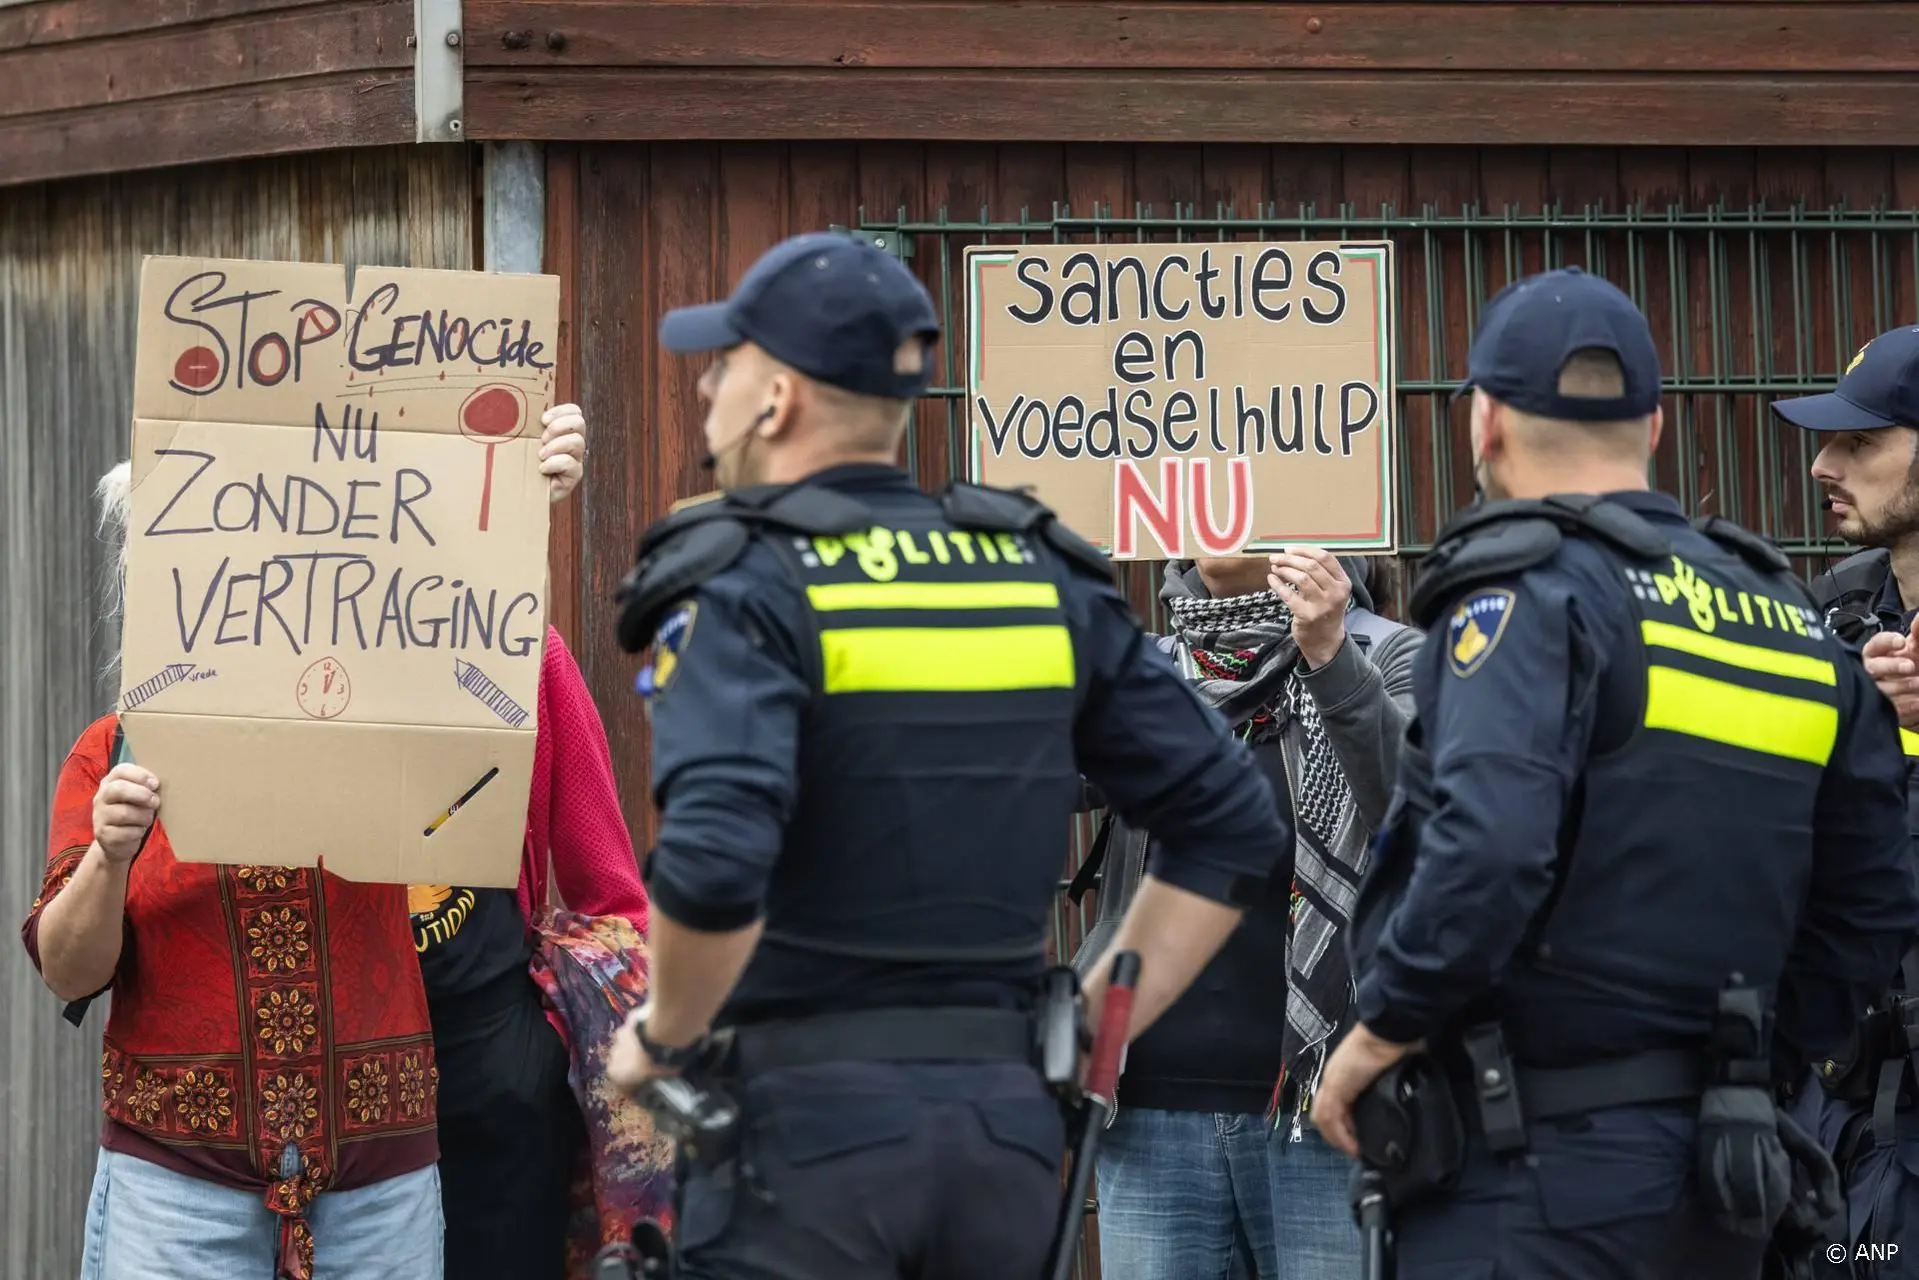 STOP GENOCIDE
NU
ZONDER
VERTRAGING
vrede
12
3
6
sancties
en
voedselhulp
NU
POLITIE
POLITIE
POLITIE
UTION
© ANP